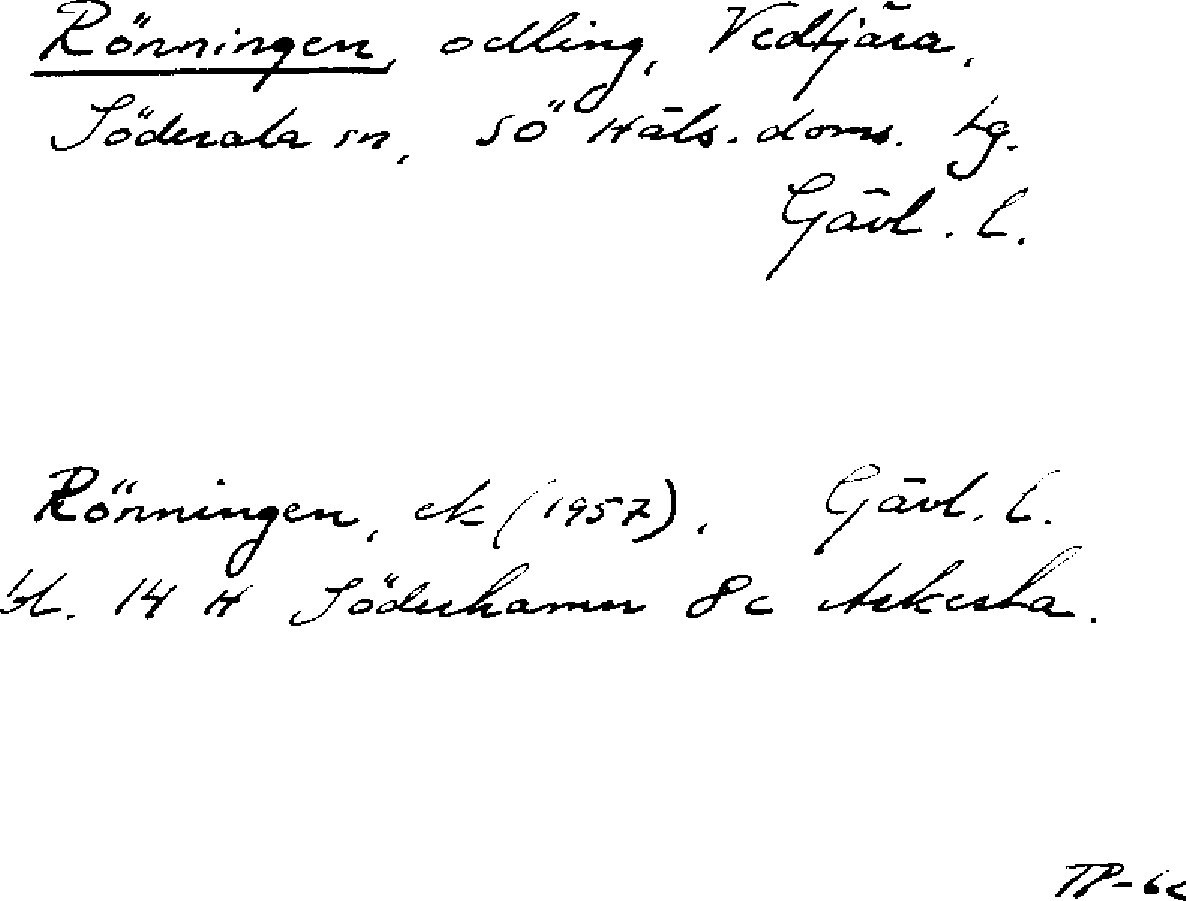 Rönningen, odling, Vedtjära,
Söderala sn, SÖ Häls. doms. tg.
Gävl. l.
Rönningen, ek (1957). Gävl. l.
bl. 14 H Söderhamn 8c Askesta.